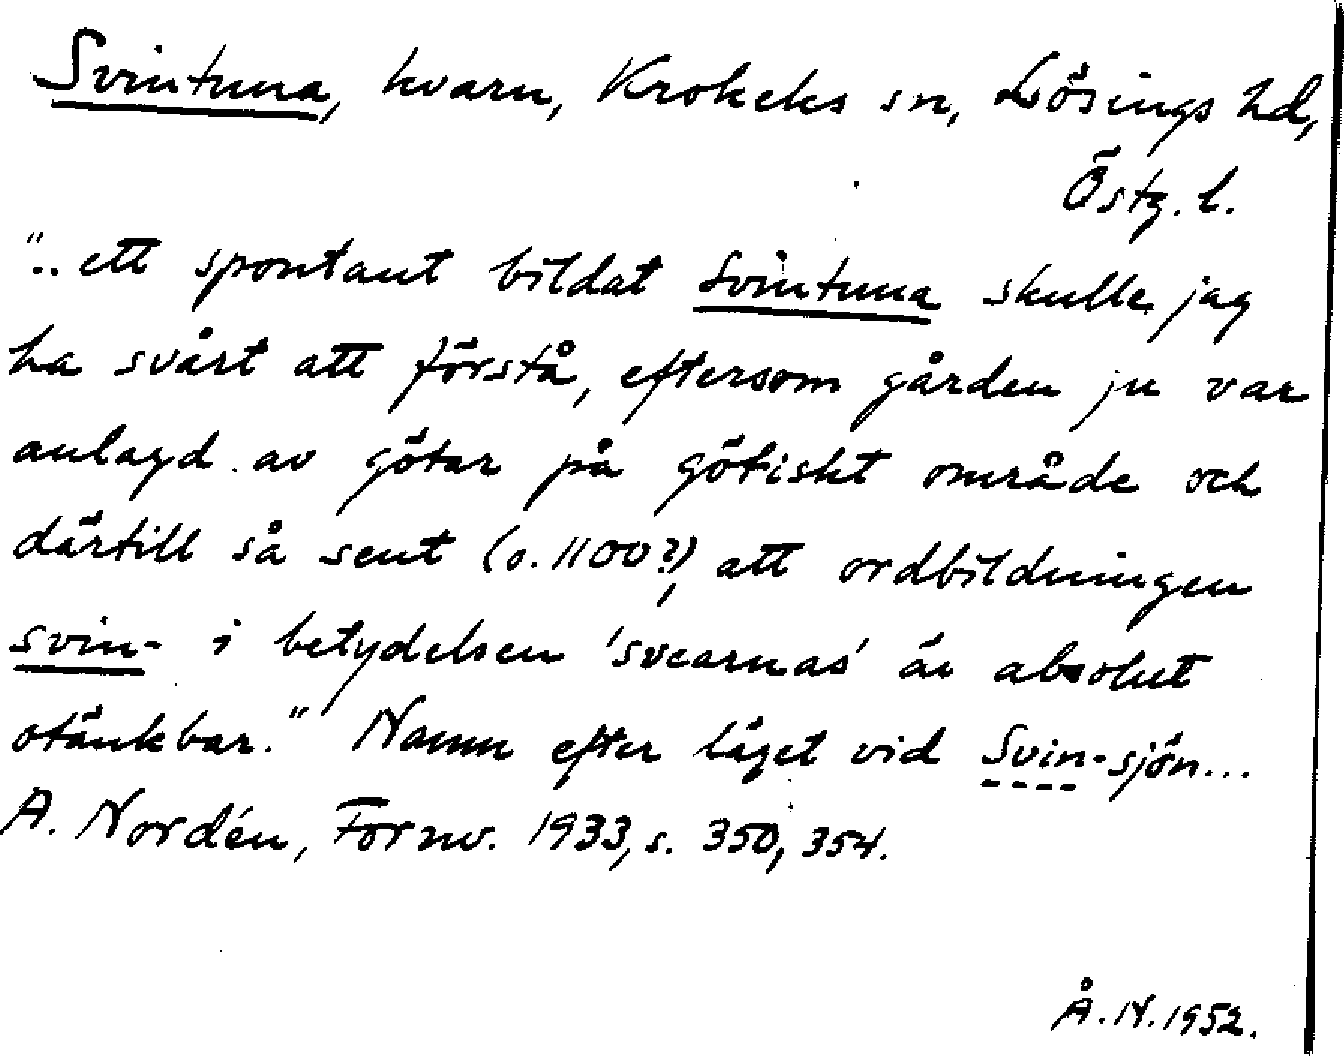 Svintuna, kvarn, Krokeks sn, Lösings hd,
Östg. l.
".. ett spontant bildat Svintuna skulle jag
ha svårt att förstå, eftersom gården ju var
anlagd av götar på götiskt område och
därtill så sent (o. 1100?), att ordbildningen
svin- i betydelsen 'svearnas' är absolut
otänkbar." Namn efter läget vid Svin-sjön...
A. Nordén, Fornv. 1933, s. 350, 354.
Å. N. 1952.